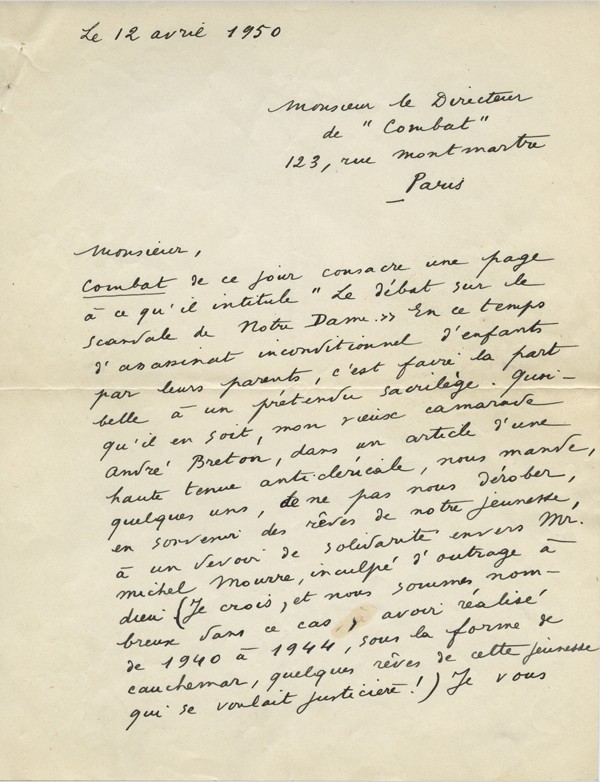 Le 12 avril 1950
Monsieur le Directeur
de " Combat "
123, rue Montmartre
Paris
Monsieur,
Combat de ce jour consacre une page
à ce qu'il intitule " Le débat sur le
scandale de Notre Dame. >> En ce temps
d'assassinat inconditionnel d'enfants
par leurs parents, c'est faire la part
belle à un prétendu sacrilège. Quoi-
qu'il en soit, mon vieux camarade
André Breton, dans un article d'une
haute tenue anticléricale, nous mande,
quelques uns, de ne pas nous dérober,
en souvenir des rêves de notre jeunesse,
à un devoir de solidarité envers Mr.
Michel Mourre, inculpé d'outrage à
dieu (Je crois, et nous sommes nom-
breux dans ce cas, avoir réalisé
de 1940 à 1944, sous la forme de
cauchemar, quelques rêves de cette jeunesse
qui se voulait justicière!) Je vous